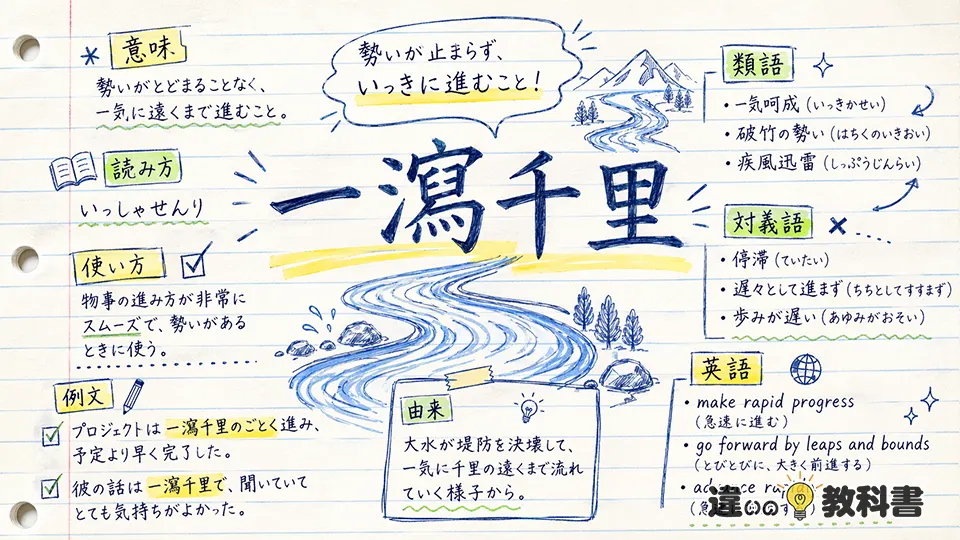 意味
勢いがとどまることなく、
一気に遠くまで進むこと。
読み方
いっしゃせんり
使い方
物事の進み方が非常に
スムーズで、勢いがある
ときに使う。
例文
プロジェクトは一瀉千里のごとく進み、
予定より早く完了した。
彼の話は一瀉千里で、聞いていて
とても気持ちがよかった。
勢いが止まらず、
いっきに進むこと!
一瀉千里
由来
大水が堤防を決壊して、
一気に千里の遠くまで流れ
ていく様子から。
類語
・一気呵成(いっきかせい)
・破竹の勢い(はちくのいきおい)
・疾風迅雷(しっぷうじんらい)
対義語
・停滞(ていたい)
・遅々として進まず(ちちとしてすすまず)
・歩みが遅い(あゆみがおそい)
英語
・make rapid progress
(急速に進む)
・go forward by leaps and bounds
(とびとびに、大きく前進する)
違いの教科書